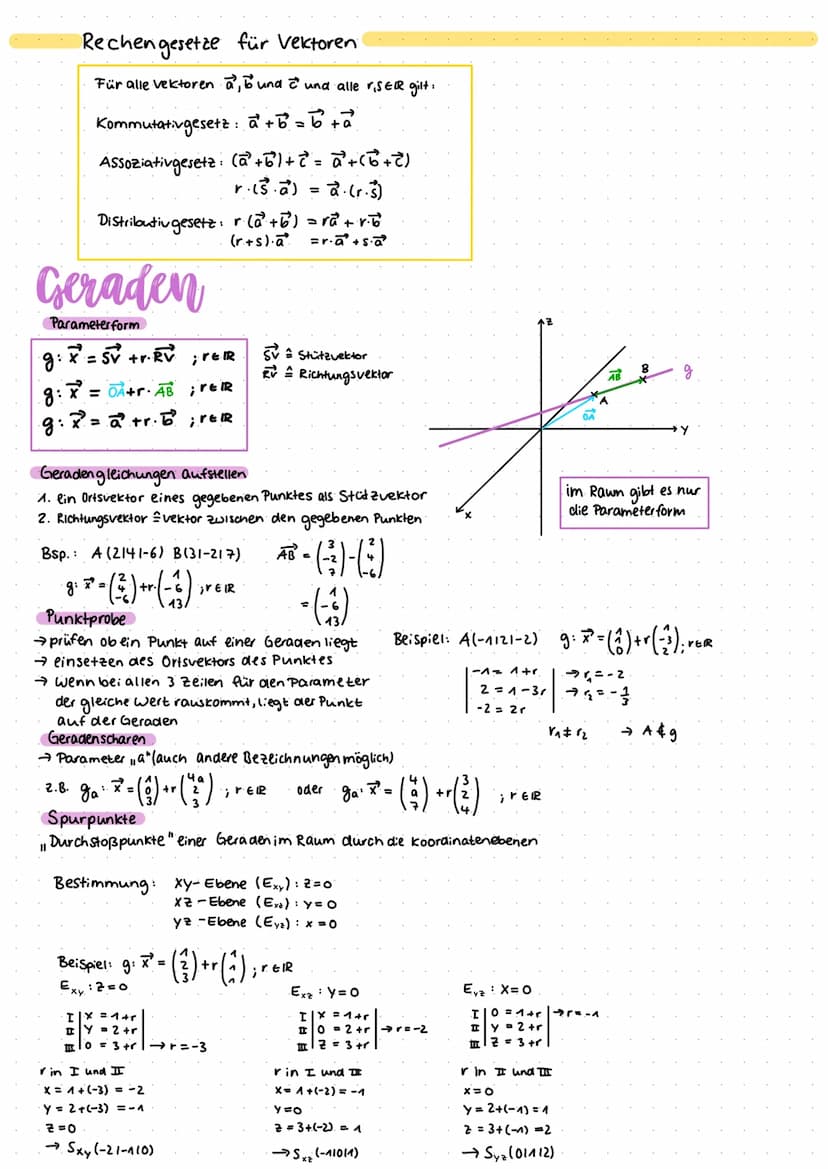 Rechengesetze für Vektoren
Für alle Vektoren a⃗, b⃗ und c⃗ und alle r,s∈ℝ gilt:
Kommutativgesetz: a⃗ + b⃗ = b⃗ + a⃗
Assoziativgesetz: (a⃗ + b⃗) + c⃗ = a⃗ + (b⃗ + c⃗)
r·(s⃗·a⃗) = a⃗·(r·s⃗)
Distributivgesetz: r·(a⃗ + b⃗) = ra⃗ + r·b⃗
(r+s)·a⃗ = r·a⃗ + s·a⃗
Geraden
Parameterform
g: x⃗ = SV⃗ + r·RV⃗ ; r∈ℝ
g: x⃗ = OA⃗ + r·AB⃗ ; r∈ℝ
g: x⃗ = a⃗ + r·b⃗ ; r∈ℝ
SV⃗ ≙ Stützvektor
RV⃗ ≙ Richtungsvektor
z
AB⃗
B
g
A
OA⃗
y
x
im Raum gibt es nur
die Parameterform
Geradengleichungen aufstellen
1. ein Ortsvektor eines gegebenen Punktes als Stützvektor
2. Richtungsvektor ≙ Vektor zwischen den gegebenen Punkten
Bsp.: A(2|4|-6) B(3|-2|7) AB⃗ = (3 -2 7) - (2 4 -6)
g: x⃗ = (2 4 -6) + r·(1 -6 13) ; r∈ℝ = (1 -6 13)
Punktprobe
→ prüfen ob ein Punkt auf einer Geraden liegt
→ einsetzen des Ortsvektors des Punktes
→ Wenn bei allen 3 Zeilen für den Parameter
der gleiche Wert rauskommt, liegt der Punkt
auf der Geraden
Beispiel: A(-1|2|-2) g: x⃗ = (1 1 0) + r(1 -3 2) ; r∈ℝ
-1 = 1+r → r₁ = -2
2 = 1-3r → r₂ = -1/3
-2 = 2r
r₁ ≠ r₂ → A ∉ g
Geradenscharen
→ Parameter „a" (auch andere Bezeichnungen möglich)
z.B. gₐ: x⃗ = (1 0 3) + r(4a 2 3) ; r∈ℝ oder gₐ: x⃗ = (4 a 7) + r(3 2 4) ; r∈ℝ
Spurpunkte
„Durchstoßpunkte" einer Geraden im Raum durch die Koordinatenebenen
Bestimmung: xy-Ebene (Exy): z=0
xz-Ebene (Exz): y=0
yz-Ebene (Eyz): x=0
Beispiel: g: x⃗ = (1 2 3) + r(1 1 1) ; r∈ℝ
Exy: z=0
I x = 1+r
II y = 2+r
III 0 = 3+r → r=-3
r in I und II
x = 1+(-3) = -2
y = 2+(-3) = -1
z=0
→ Sxy(-2|-1|0)
Exz: y=0
I x = 1+r
II 0 = 2+r → r=-2
III z = 3+r
r in I und III
x = 1+(-2) = -1
y=0
z = 3+(-2) = 1
→ Sxz(-1|0|1)
Eyz: x=0
I 0 = 1+r → r=-1
II y = 2+r
III z = 3+r
r in II und III
x=0
y = 2+(-1) = 1
z = 3+(-1) = 2
→ Syz(0|1|2)